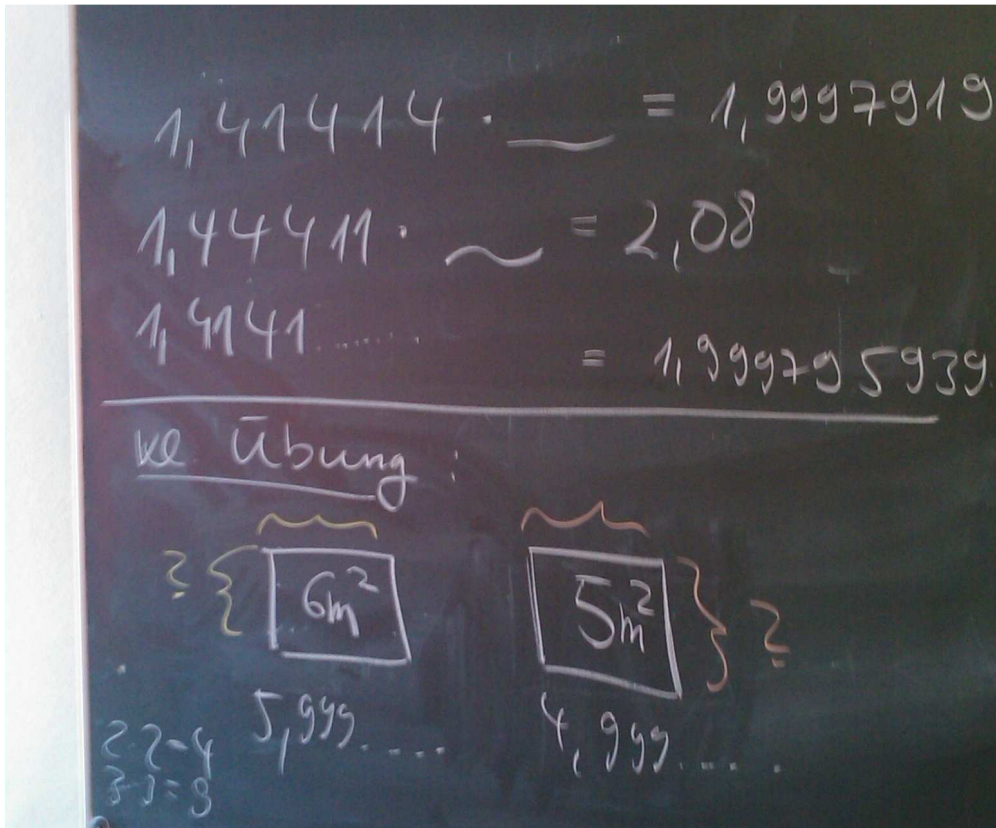 1,41414 · = 1,9997919
1,44411 · = 2,08
1,4141....... = 1,999795939
ke Übung:
? 6m² 5m² ?
5,999.... 4,999....
2·2=4
3·3=9